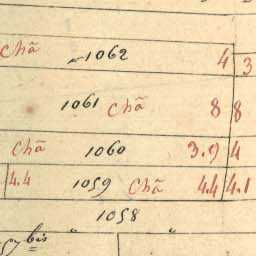 Chã 1062 4 3
1061 Chã 8 8
Chã 1060 3.9 4
4.4 1059 Chã 4.4 4.1
1058
bis